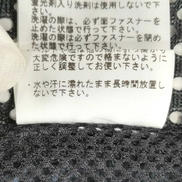 剤入り洗剤は使用しないで下さい。
洗濯の際は、必ず面ファスナーを
止めた状態で行って下さい。
洗濯の際は、必ずファスナーを閉め
た状態で行って下さい。
大変危険ですので絡まないように
正しく調整してお使い下さい。
・水や汗に濡れたまま長時間放置し
ないで下さい。